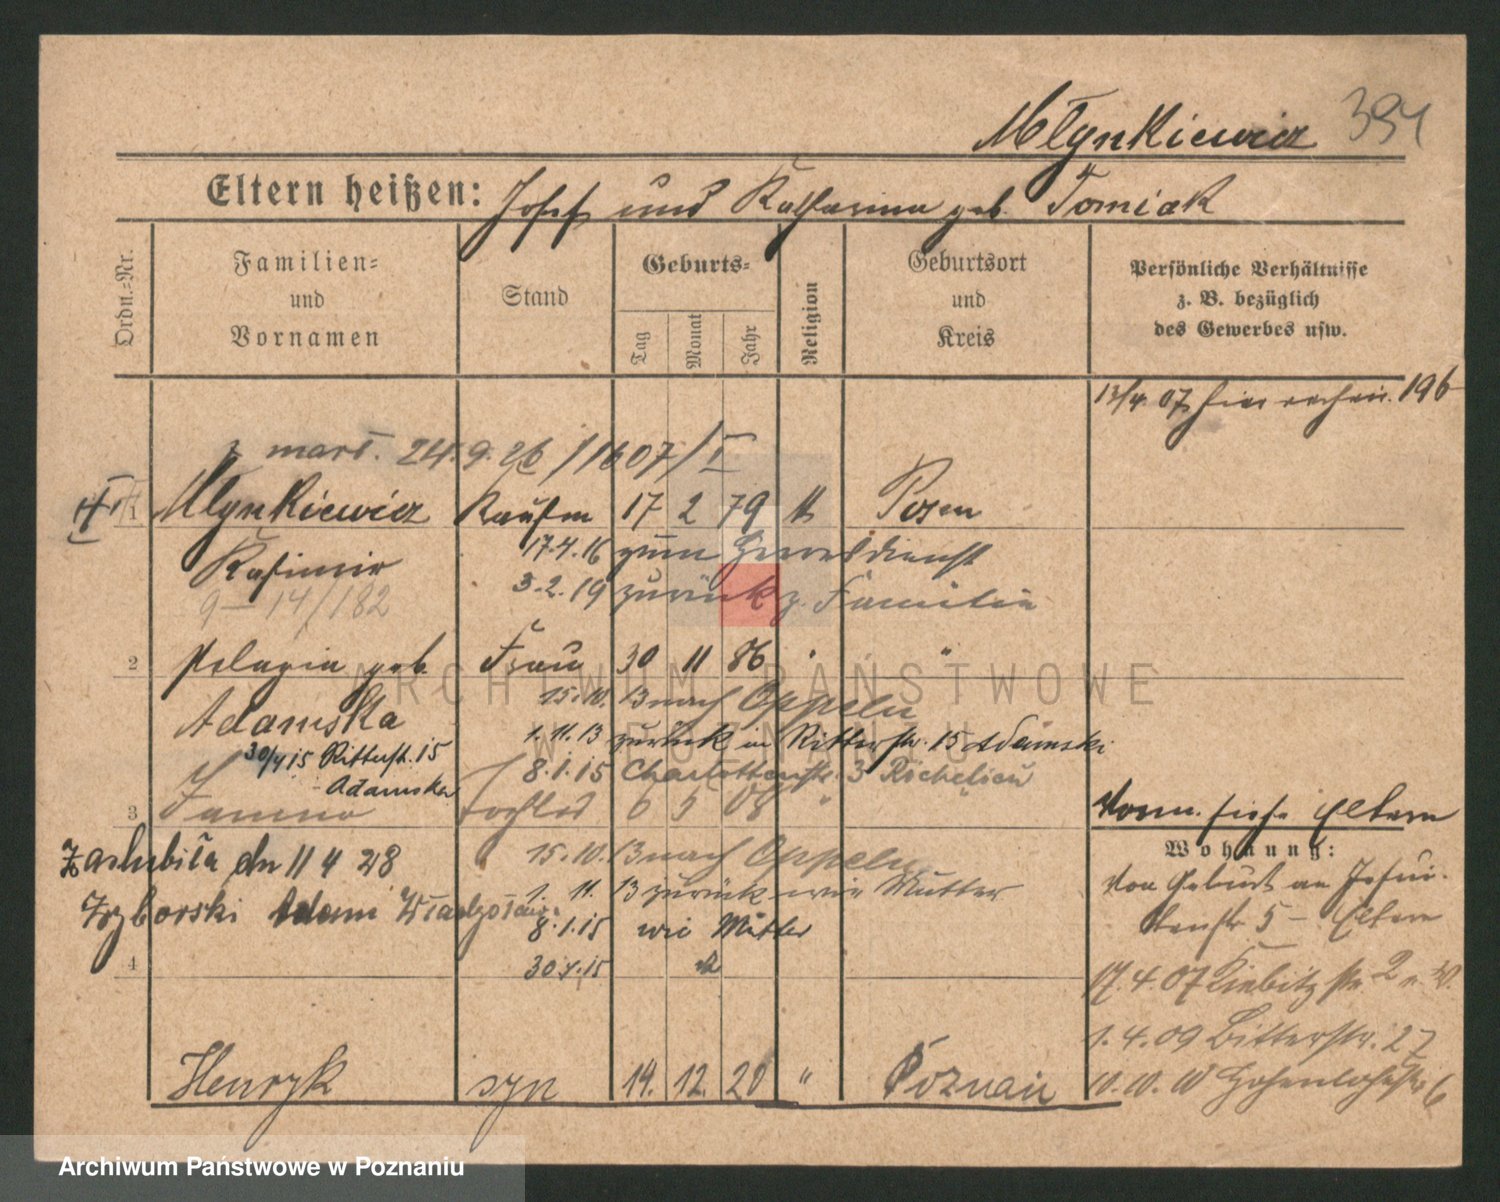 Młynkiewicz 394
Eltern heißen: Josef und Katharina geb. Tomiak
Ordn.-Nr.
Familien-
und
Vornamen
Stand
Geburts-
Tag
Monat
Jahr
Religion
Geburtsort
und
Kreis
Persönliche Verhältnisse
z. B. bezüglich
des Gewerbes usw.
13/4. 07 hier 196
† marł. 24.9.26/1607/I
Młynkiewicz Kaufm 17 2 79 k Posen
Kasimir 17.4.16 zum Heeresdienst
9-14/182 3.2.19 zurück z. Familie
2 Pelagia geb. Frau 30 11 86 " "
Adamska 15.10.13 nach Oppeln
1.11.13 zurück in Ritterstr. 15 Adamski
30/4 15 Ritterstr. 15
Adamska
8.1.15 Charlottenstr. 3 Richelieu
3 Janina Tochter 6 5 08 " "
15.10.13 nach Oppeln
Zaślubiła dn 11 4 28
1. 11. 13 zurück wie Mutter
Zyborski Adam Władysław
8.1.15 wie Mutter
4 30.4.15
Henryk syn 14. 12. 20 " Poznań
Vorm. siehe Eltern
Wohnung:
Von Geburt an Jesui-
tenstr 5 - Eltern
17.4.07 Kiebitzstr. 2
1.4.09 Ritterstr. 27
10.10.10 Hohenlohestr 6
ARCHIWUM PAŃSTWOWE
W POZNANIU
Archiwum Państwowe w Poznaniu